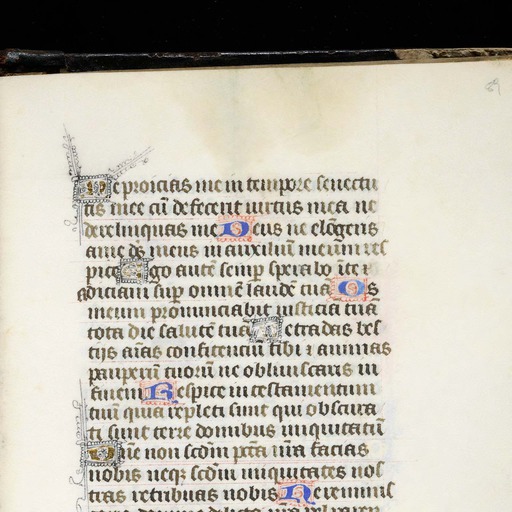 89
Ne proicias me in tempore senectu
tis mee cū defecerit uirtus mea ne
derelinquas me Deus ne elōgeris
a me ds̄ meus in auxilium meum res
pice Ego autē semp sperabo ⁊ et
adiciam sup omnē laudē tuā Os
meum pronunciabit iusticiā tuā
tota die salutē tuā Ne tradas bes
tijs aīas confitenciū tibi ⁊ animas
pauperū tuorū ne obliuiscaris in
finem Respice in testamentum
tuū quia repleti sunt qui obscura
ti sunt terre domibus iniquitatū
Dn̄e non scdm̄ pctā nr̄a facias
nobis neqꝫ scdm̄ iniquitates nos
tras retribuas nobis Ne reminis